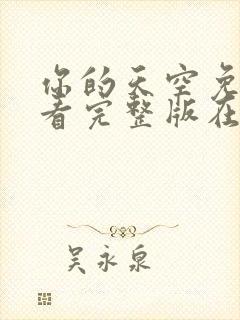 你的天空免
看完整版在
吴永泉